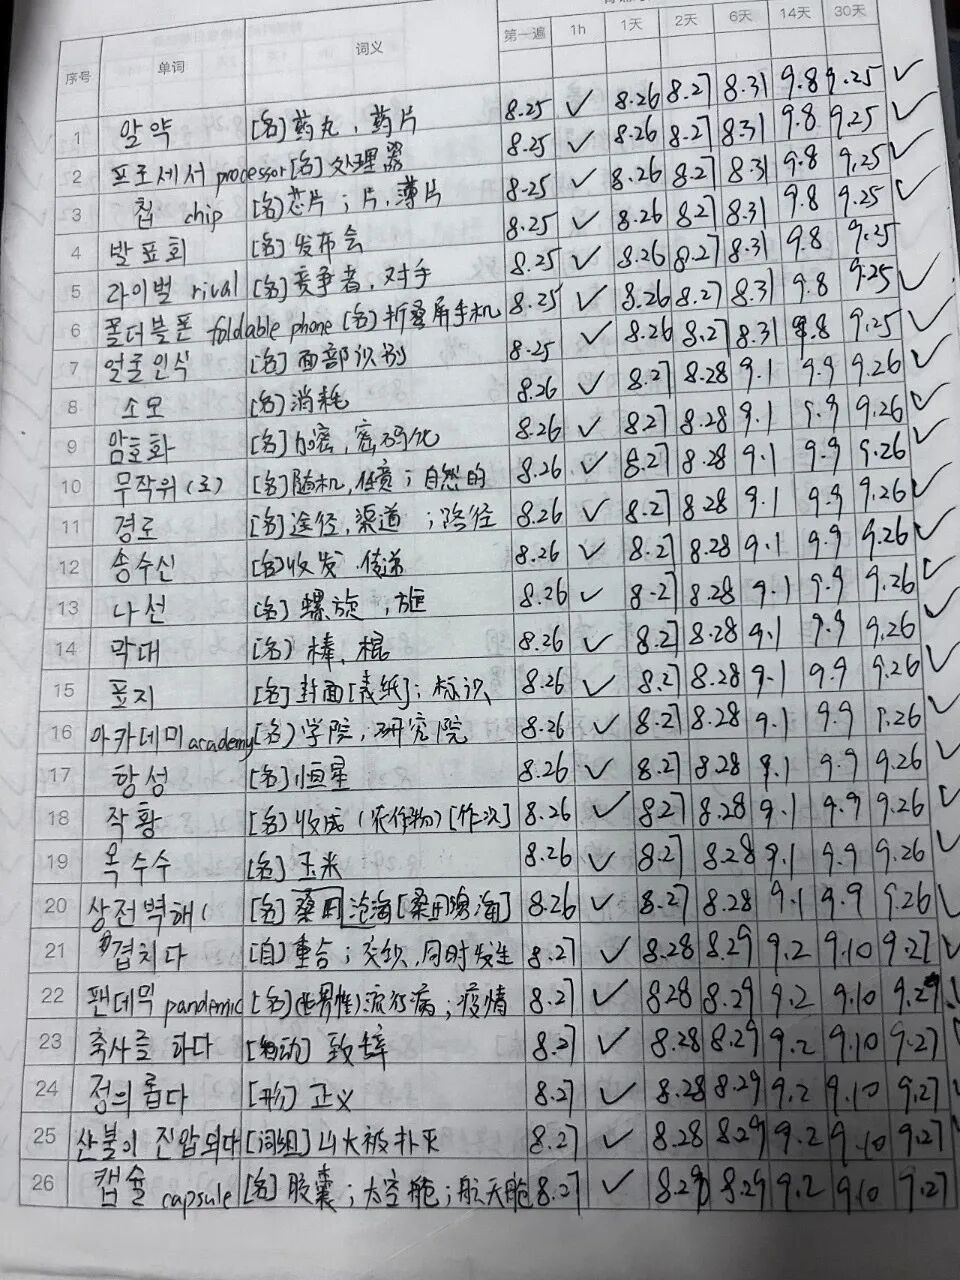 序号 单词 词义 第一遍 1h 1天 2天 6天 14天 30天
1 알약 [名] 药丸, 药片 8.25 ✓ 8.26 8.27 8.31 9.8 9.25 ✓
2 프로세서 processor [名] 处理器 8.25 ✓ 8.26 8.27 8.31 9.8 9.25 ✓
3 칩 chip [名] 芯片; 片, 薄片 8.25 ✓ 8.26 8.27 8.31 9.8 9.25 ✓
4 발표회 [名] 发布会 8.25 ✓ 8.26 8.27 8.31 9.8 9.25 ✓
5 라이벌 rival [名] 竞争者, 对手 8.25 ✓ 8.26 8.27 8.31 9.8 9.25
6 폴더블폰 foldable phone [名] 折叠屏手机 8.25 ✓ 8.26 8.27 8.31 9.8 9.25 ✓
7 얼굴인식 [名] 面部识别 8.25 ✓ 8.26 8.27 8.31 9.8 9.25 ✓
8 소모 [名] 消耗 8.26 ✓ 8.27 8.28 9.1 9.9 9.26 ✓
9 암호화 [名] 加密, 密码化 8.26 ✓ 8.27 8.28 9.1 9.9 9.26 ✓
10 무작위(로) [名] 随机, 任意; 自然的 8.26 ✓ 8.27 8.28 9.1 9.9 9.26 ✓
11 경로 [名] 途径, 渠道; 路径 8.26 ✓ 8.27 8.28 9.1 9.9 9.26 ✓
12 송수신 [名] 收发 传送 8.26 ✓ 8.27 8.28 9.1 9.9 9.26 ✓
13 나선 [名] 螺旋, 旋 8.26 ✓ 8.27 8.28 9.1 9.9 9.26 ✓
14 막대 [名] 棒, 棍 8.26 ✓ 8.27 8.28 9.1 9.9 9.26 ✓
15 표지 [名] 封面[表纸]; 标识 8.26 ✓ 8.27 8.28 9.1 9.9 9.26 ✓
16 아카데미 academy [名] 学院, 研究院 8.26 ✓ 8.27 8.28 9.1 9.9 9.26 ✓
17 항성 [名] 恒星 8.26 ✓ 8.27 8.28 9.1 9.9 9.26 ✓
18 작황 [名] 收成(农作物)[作况] 8.26 ✓ 8.27 8.28 9.1 9.9 9.26 ✓
19 옥수수 [名] 玉米 8.26 ✓ 8.27 8.28 9.1 9.9 9.26 ✓
20 상전벽해( [名] 桑田沧海[桑田沧海] 8.26 ✓ 8.27 8.28 9.1 9.9 9.26 ✓
21 겹치다 [自] 重合; 交织, 同时发生 8.27 ✓ 8.28 8.29 9.2 9.10 9.27 ✓
22 팬데믹 pandemic [名] (世界性)流行病; 疫情 8.27 ✓ 8.28 8.29 9.2 9.10 9.27
23 축사를 하다 致辞 8.27 ✓ 8.28 8.29 9.2 9.10 9.27
24 정의롭다 [形] 正义 8.27 ✓ 8.28 8.29 9.2 9.10 9.27
25 산불이 진압되다 [词组] 山火被扑灭 8.27 ✓ 8.28 8.29 9.2 9.10 9.27
26 캡슐 capsule [名] 胶囊; 太空舱; 航天舱 8.27 ✓ 8.29 8.29 9.2 9.10 9.27